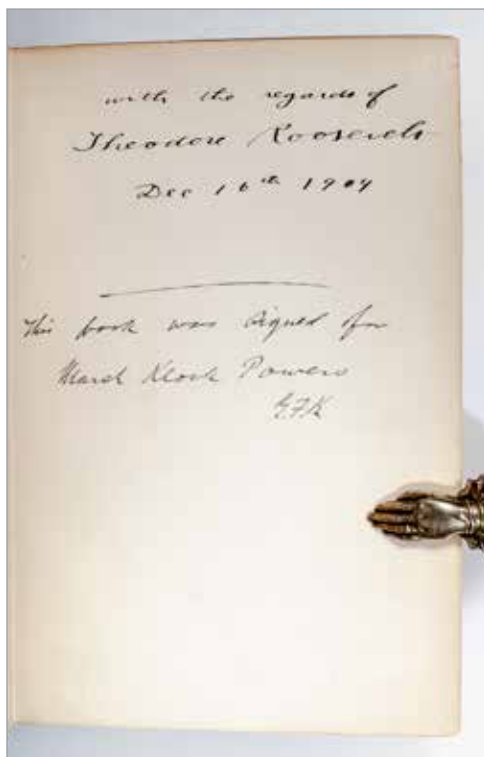 with the regards of
Theodore Roosevelt
Dec 16th 1909
This book was signed for
Powers